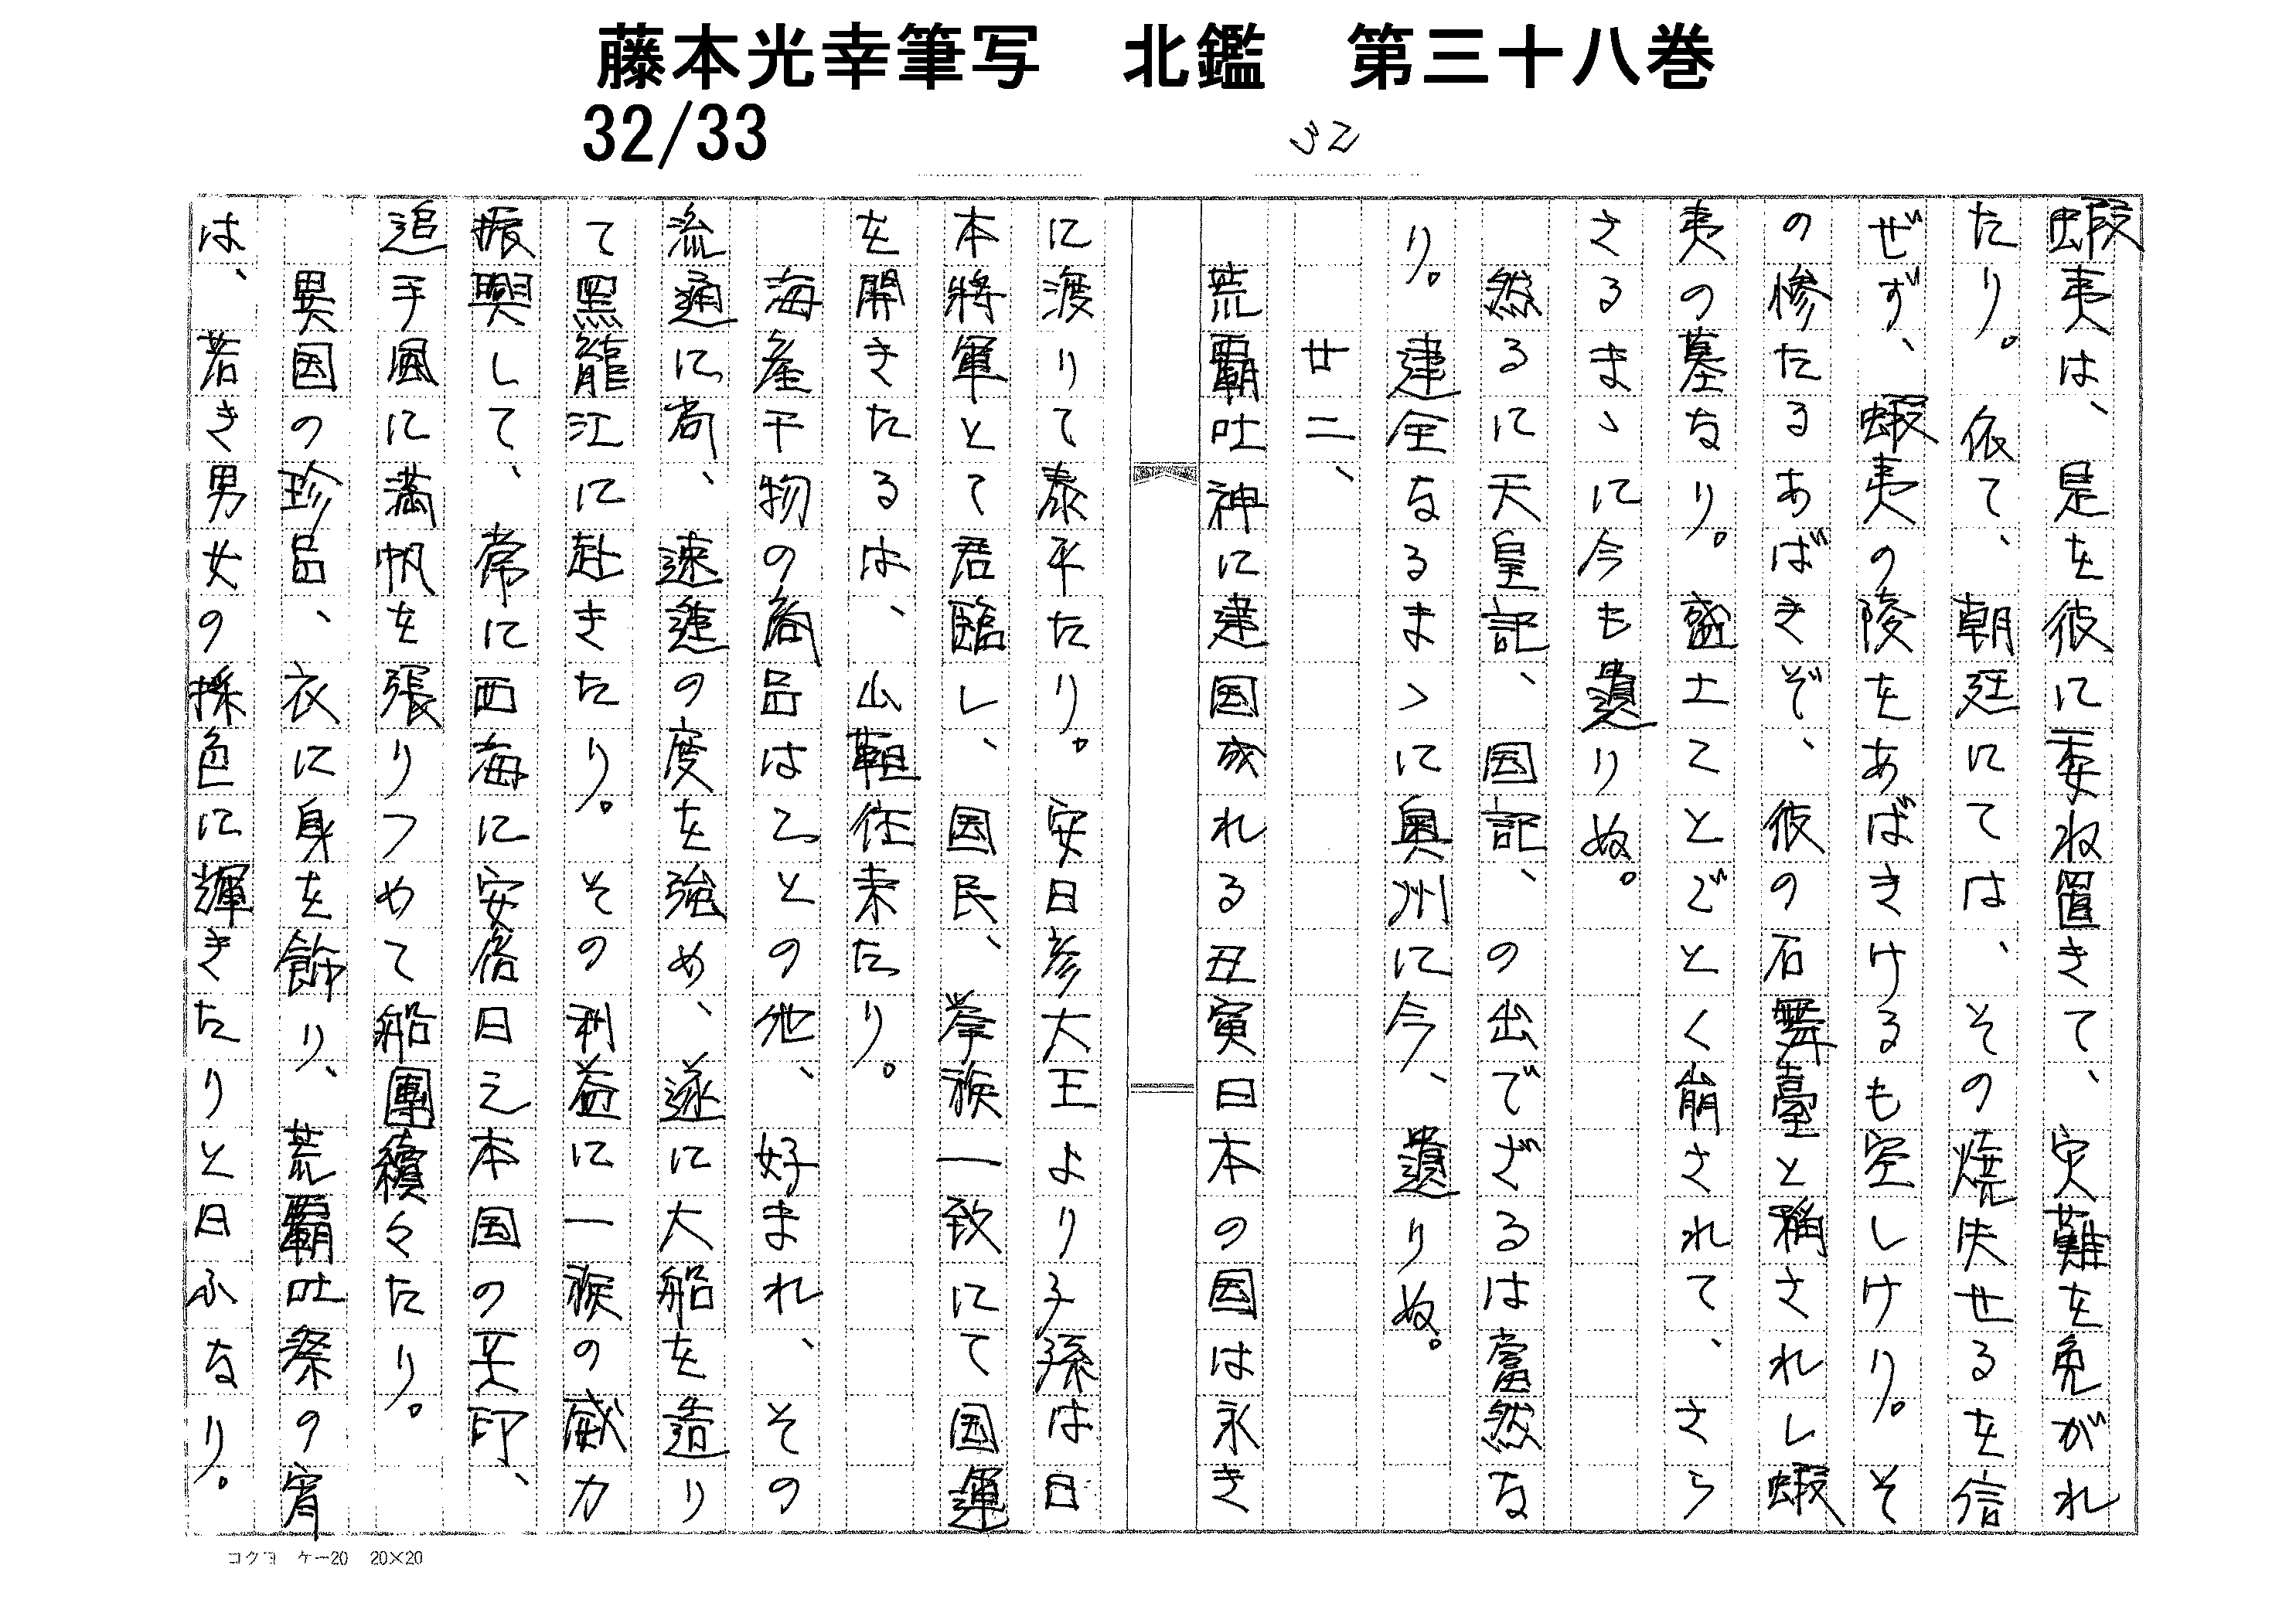 藤本光幸筆写　北鑑　第三十八巻
32/33
32
蝦夷は、是を彼に委ね置きて、災難を免がれ
たり。依て、朝廷にては、その焼失せるを信
ぜず、蝦夷の陵をあばきけるも空しけり。そ
の惨たるあばきぞ、彼の石舞臺と稱されし蝦
夷の墓なり。盛土ことごとく崩されて、さら
さるまゝに今も遺りぬ。
然るに天皇記、国記、の出でざるは當然な
り。建全なるまゝに奥州に今、遺りぬ。
廿二、
荒覇吐神に建国成れる丑寅日本の国は永き
に渡りて泰平たり。安日彦大王より子孫は日
本將軍とて君臨し、国民、挙族一致にて国運
を開きたるは、山靼往来たり。
海産干物の商品はことの他、好まれ、その
流通に尚、速進の度を強め、遂に大船を造り
て黑龍江に赴きたり。その利益に一族の威力
振興して、常に西海に安倍日之本国の王印、
追手風に満帆を張りつめて船團續々たり。
異国の珍品、衣に身を飾り、荒覇吐祭の宵
は、若き男女の採色に輝きたりと曰ふなり。
コクヨ　ケー20　20×20